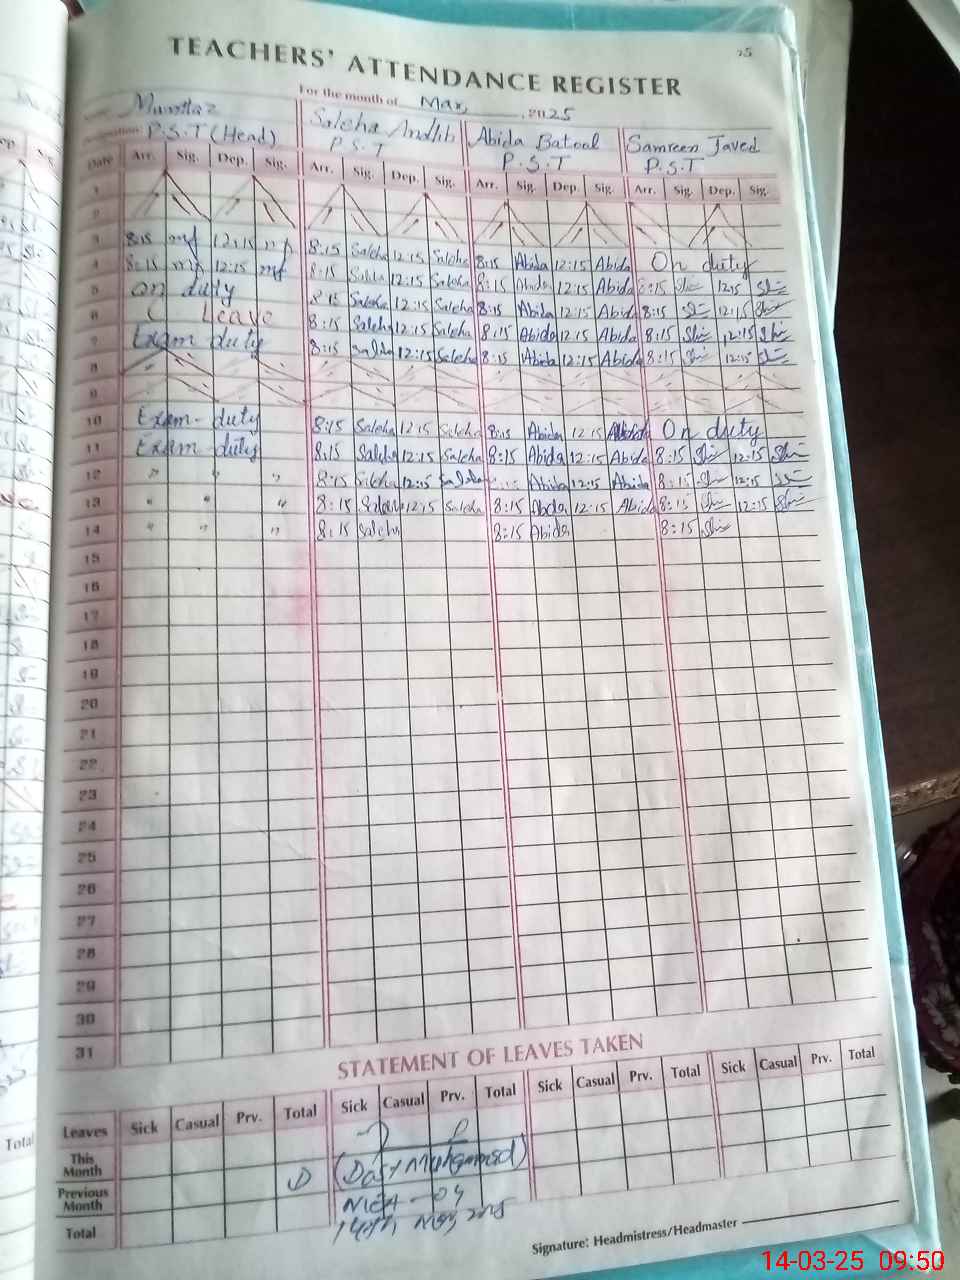 25
TEACHERS' ATTENDANCE REGISTER
For the month of Mar, 2025
Mumtaz Saleha Andlib Abida Batool Samreen Javed
Designation: P.S.T (Head) P.S.T P.S.T P.S.T
Date Arr. Sig. Dep. Sig. Arr. Sig. Dep. Sig. Arr. Sig. Dep. Sig. Arr. Sig. Dep. Sig.
1
2
3 8:15 12:15 8:15 Saleha 12:15 Saleha 8:15 Abida 12:15 Abida On duty
4 8:15 12:15 8:15 Saleha 12:15 Saleha 8:15 Abida 12:15 Abida 8:15 12:15
5 on duty 8:15 Saleha 12:15 Saleha 8:15 Abida 12:15 Abida 8:15 12:15
6 C Leave 8:15 Saleha 12:15 Saleha 8:15 Abida 12:15 Abida 8:15 12:15
7 Exam duty 8:15 Saleha 12:15 Saleha 8:15 Abida 12:15 Abida 8:15 12:15
8
9
10 Exam-duty 8:15 Saleha 12:15 Saleha 8:15 Abida 12:15 Abida On duty
11 Exam duty 8:15 Saleha 12:15 Saleha 8:15 Abida 12:15 Abida 8:15 12:15
12 " " " 8:15 Saleha 12:15 Saleha Abida 12:15 Abida 8:15 12:15
13 " " " 8:15 Saleha 12:15 Saleha 8:15 Abida 12:15 Abida 8:15 12:15
14 " " " 8:15 Saleha 8:15 Abida 8:15
15
16
17
18
19
20
21
22
23
24
25
26
27
28
29
30
31
STATEMENT OF LEAVES TAKEN
Leaves Sick Casual Prv. Total Sick Casual Prv. Total Sick Casual Prv. Total Sick Casual Prv. Total
This Month
Previous Month
(Dost Muhammad)
Total
MEA-04
14th Mar 2025
Signature: Headmistress/Headmaster
14-03-25 09:50